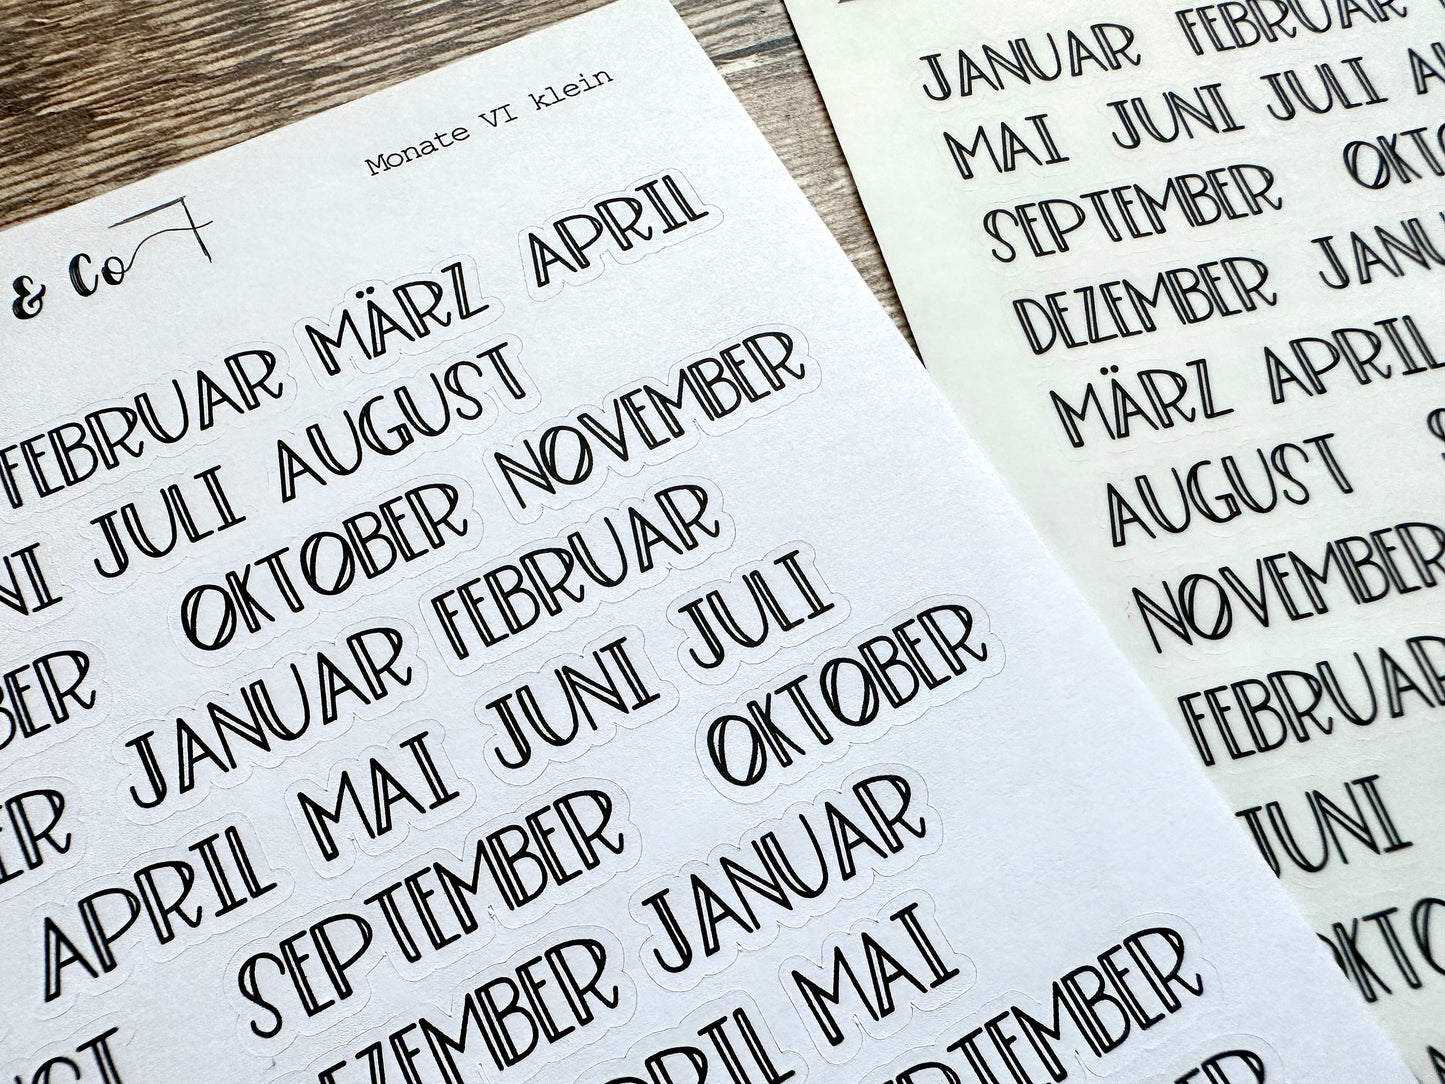 Monate VI klein
& Co
FEBRUAR MÄRZ APRIL
JULI AUGUST
OKTOBER NOVEMBER
JANUAR FEBRUAR
APRIL MAI JUNI JULI
SEPTEMBER OKTOBER
DEZEMBER JANUAR
APRIL MAI
SEPTEMBER
JANUAR FEBRUAR
MAI JUNI JULI
SEPTEMBER
DEZEMBER
MÄRZ APRIL
AUGUST
NOVEMBER
FEBRUAR
JUNI